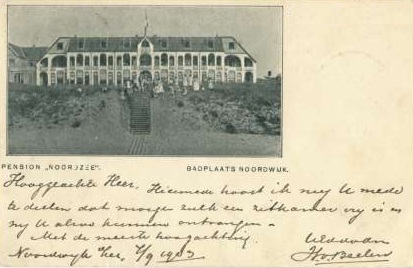 PENSION „NOORDZEE".
BADPLAATS NOORDWIJK.
Hooggeachte Heer, Hiermede haast ik mij U mede
te deelen dat mogen zulk een zitkamer vrij is en
wij U alzoo kunnen ontvangen.
Met de meeste hoogachting,
Noordwijk Zee, 7/9 1903